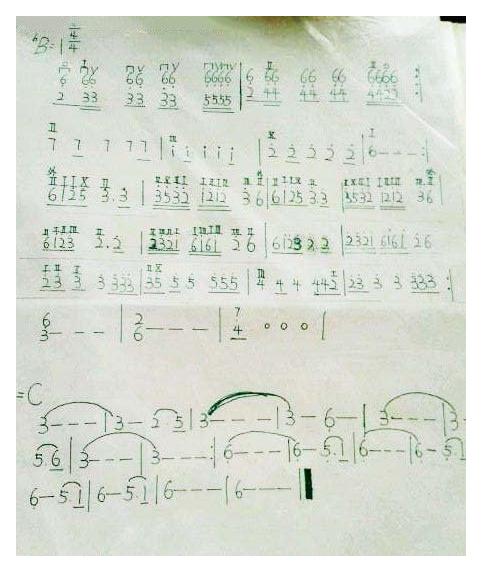 ♭B=1 4/4
6 66 66 66 6666 | 6 66 66 66 6666 :
2 33 33 33 5555 | 2 44 44 44 4422
7 7 7 7 7 | i i i i i | 2 2 2 2 2 | 6 - - - :
6125 3.3 | 3532 1212 36 | 6125 33 | 3532 1212 36 |
6123 2.2 | 2321 6161 26 | 6123 22 | 2321 6161 26
23 3 3 333 | 35 5 5 555 | 4 4 4 442 | 23 3 3 333 :
6 | 2 | 7
3 - - - | 6 - - - | 4 0 0 0 |
=C
3 - - - | 3 - 2 5 | 3 - - - | 3 - 6 - | 3 - - - | 3 -
5.6 | 3 - - - | 3 - - - : | 6 - - - | 6 - 5.1 | 6 - - - | 6 - 5.1
6 - 5.1 | 6 - 5.1 | 6 - - - | 6 - - - |